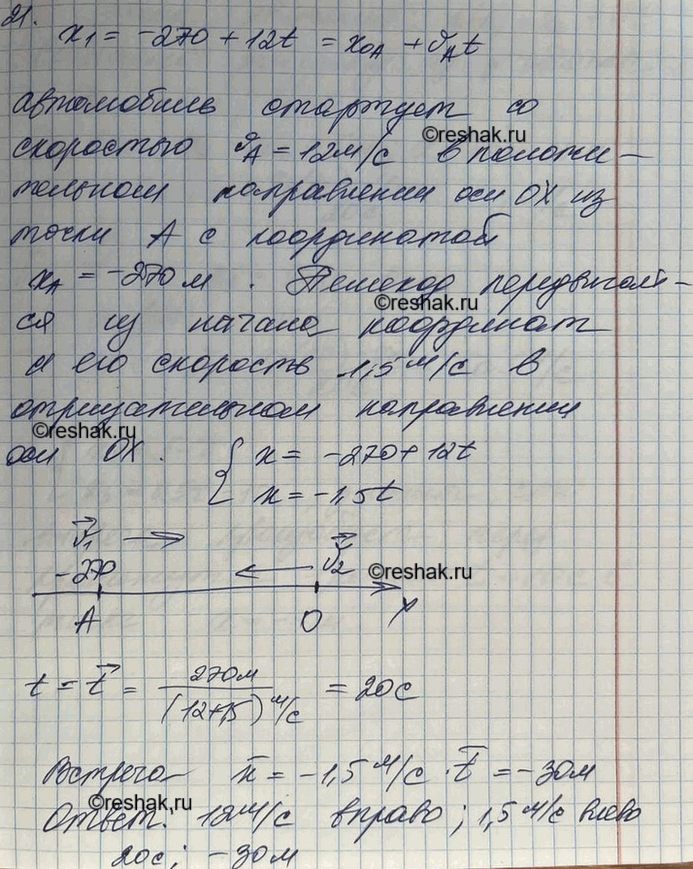 21.
x₁ = -270 + 12t = x₀A + υAt
автомобиль стартует со
©reshak.ru
скоростью υA = 12м/с в положи-
тельном направлении оси OX из
точки A с координатой
xA = -270м. Пешеход передвигал-
©reshak.ru
ся из начала координат
и его скорость 1,5 м/с в
отрицательном направлении
©reshak.ru
оси OX.
{ x = -270 + 12t
x = -1,5t
υ⃗₁ →
-270 ← υ⃗₂
©reshak.ru
A O X
t = t⃗ = 270м / (12+1,5) м/с = 20с
Встреча x̄ = -1,5 м/с · t̄ = -30м
©reshak.ru
Ответ: 12м/с вправо; 1,5 м/с влево
20с; -30м